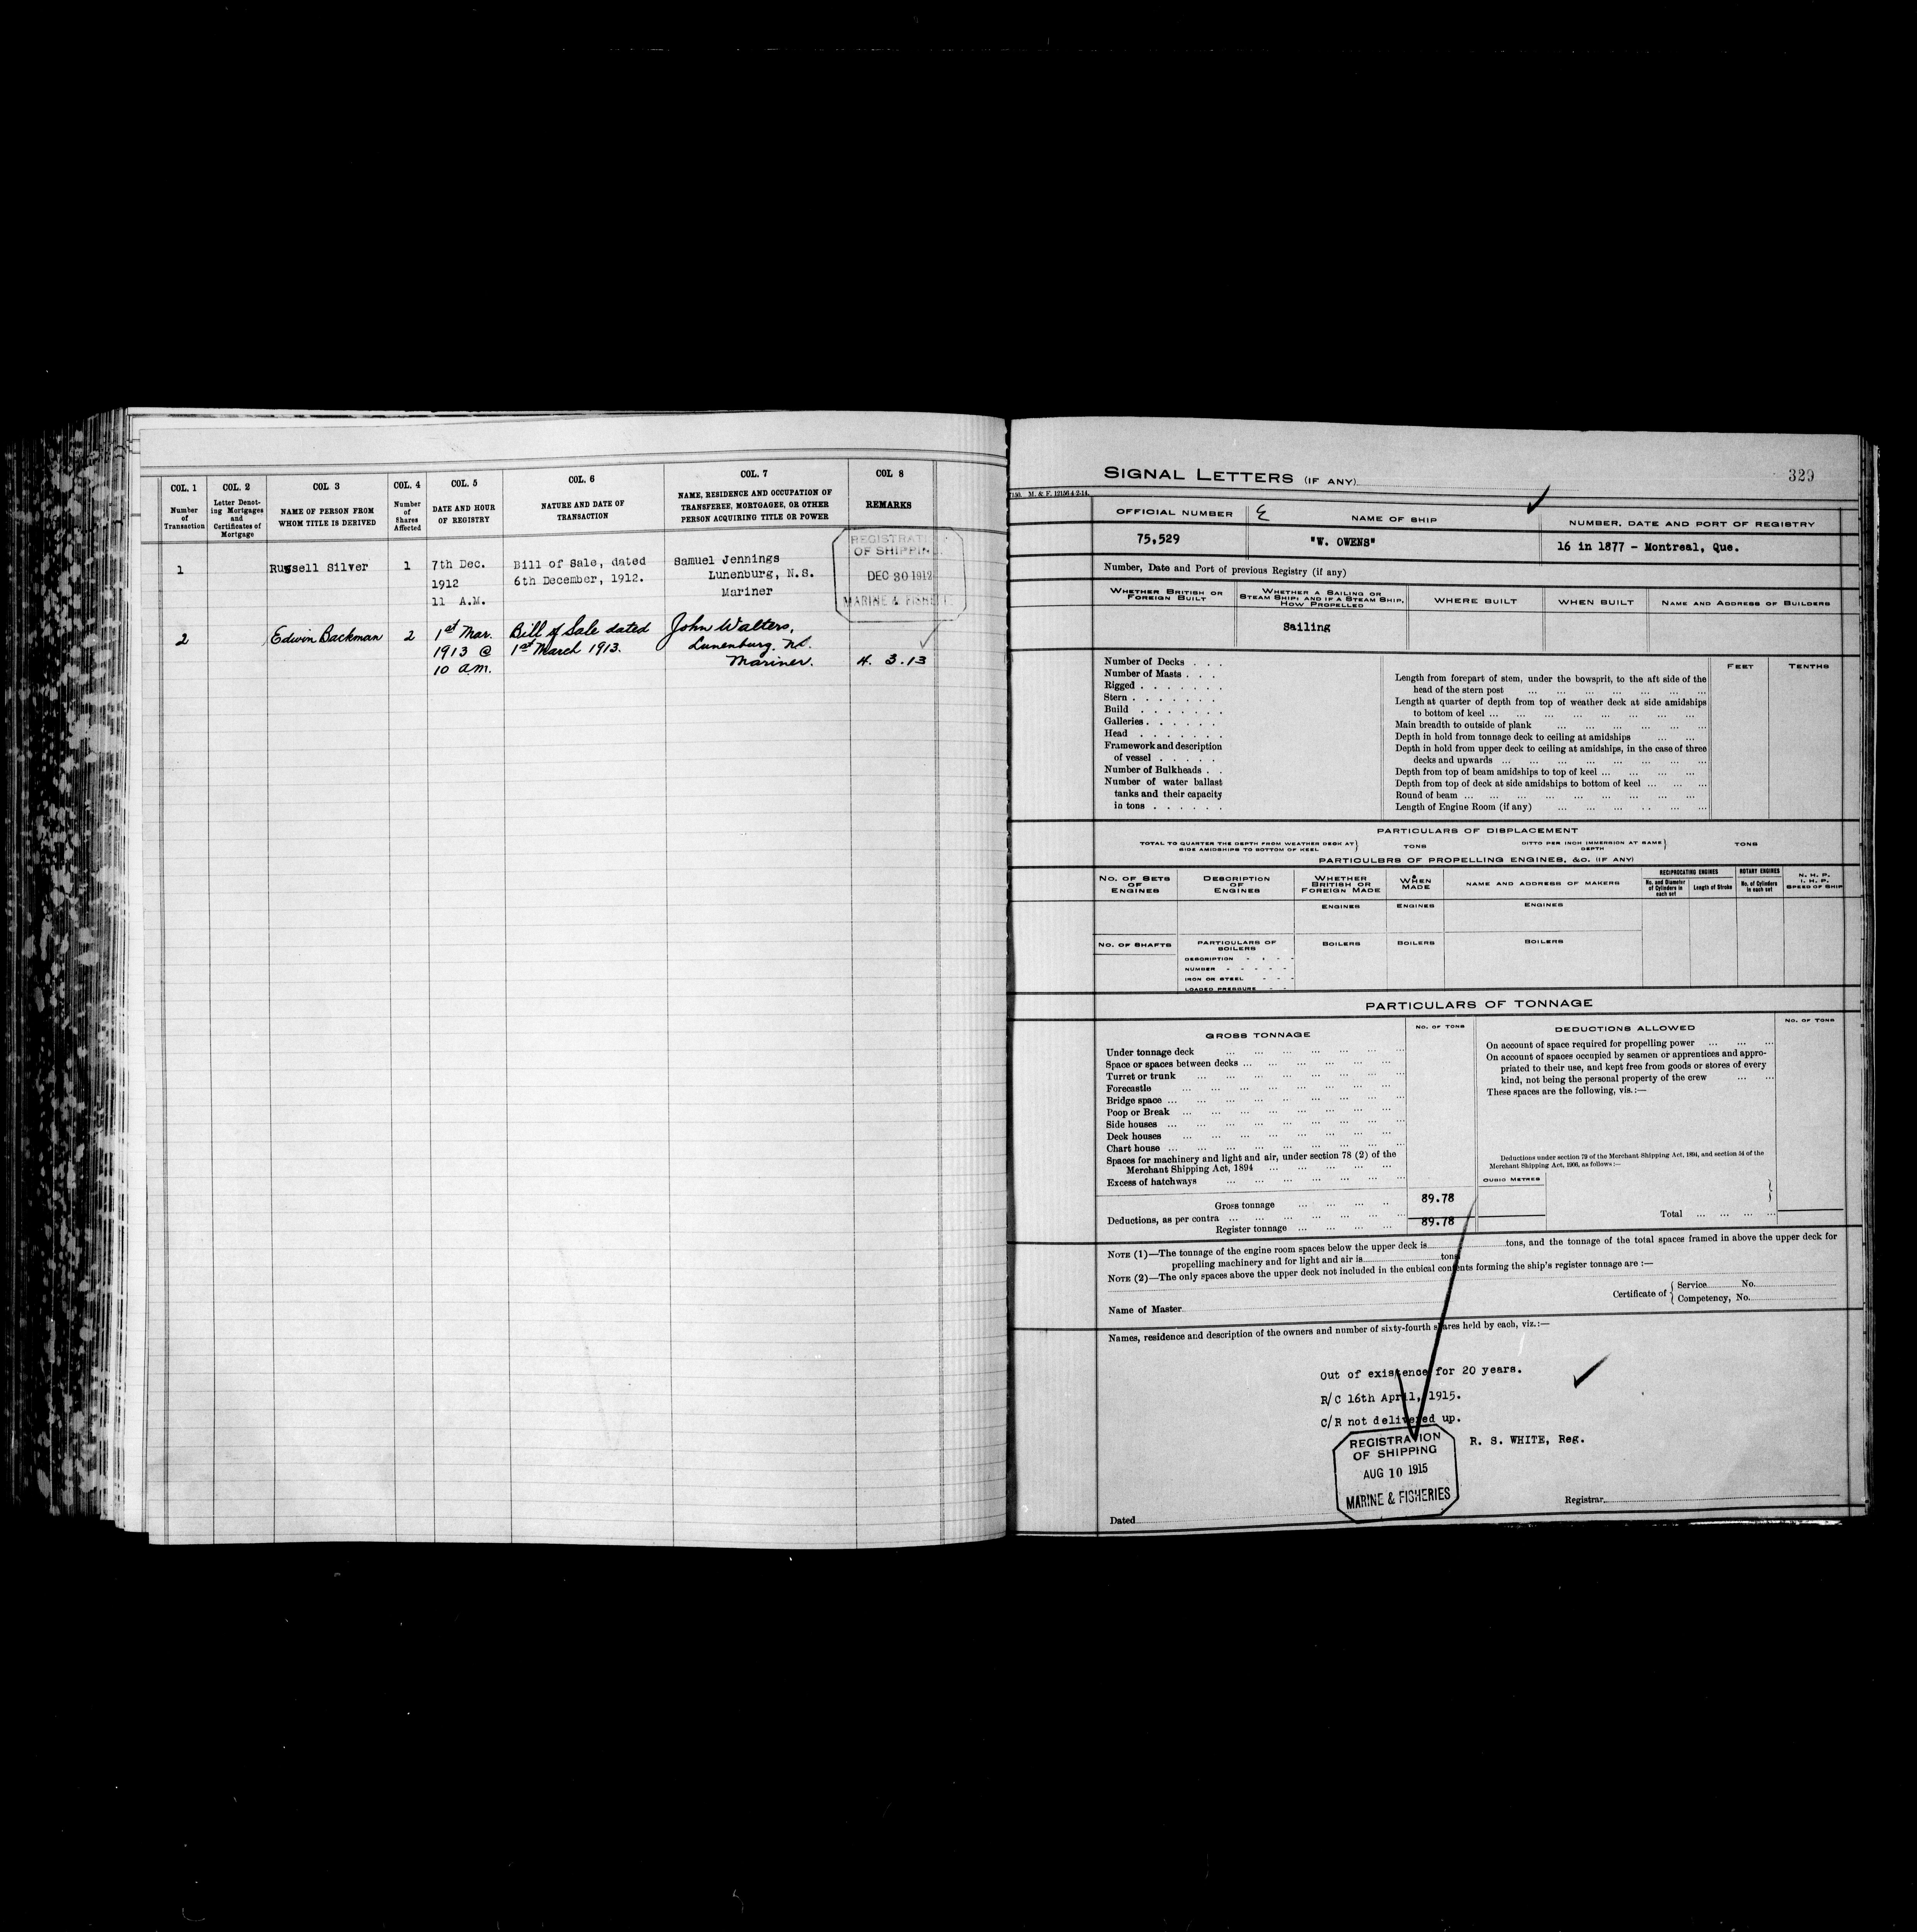 COL. 1 COL. 2 COL 3 COL. 4 COL. 5 COL. 6 COL. 7 COL 8
Number of Transaction
Letter Denoting Mortgages and Certificates of Mortgage
NAME OF PERSON FROM WHOM TITLE IS DERIVED
Number of Shares Affected
DATE AND HOUR OF REGISTRY
NATURE AND DATE OF TRANSACTION
NAME, RESIDENCE AND OCCUPATION OF TRANSFEREE, MORTGAGEE, OR OTHER PERSON ACQUIRING TITLE OR POWER
REMARKS
1 Russell Silver 1 7th Dec. Bill of Sale, dated Samuel Jennings
1912 6th December, 1912. Lunenburg, N.S.
11 A.M. Mariner
REGISTRATION
OF SHIPPING
DEC 30 1912
MARINE & FISHE
2 Edwin Backman 2 1st Mar. Bill of Sale dated John Walters,
1913 @ 1st March 1913. Lunenburg. N.S.
10 a.m. Mariner. 4. 3. 13
SIGNAL LETTERS (IF ANY)
329
M. & F. 12156 4-2-14.
OFFICIAL NUMBER NAME OF SHIP NUMBER, DATE AND PORT OF REGISTRY
75,529 "W. OWENS" 16 in 1877 - Montreal, Que.
Number, Date and Port of previous Registry (if any)
WHETHER BRITISH OR FOREIGN BUILT
WHETHER A SAILING OR STEAM SHIP; AND IF A STEAM SHIP, HOW PROPELLED
WHERE BUILT
WHEN BUILT
NAME AND ADDRESS OF BUILDERS
Sailing
FEET TENTHS
Number of Decks . . .
Number of Masts . . .
Rigged . . . . . . .
Stern . . . . . . .
Build . . . . . . .
Galleries . . . . . .
Head . . . . . . .
Framework and description
of vessel . . . . .
Number of Bulkheads . .
Number of water ballast
tanks and their capacity
in tons . . . . . .
Length from forepart of stem, under the bowsprit, to the aft side of the
head of the stern post
Length at quarter of depth from top of weather deck at side amidships
to bottom of keel
Main breadth to outside of plank
Depth in hold from tonnage deck to ceiling at amidships
Depth in hold from upper deck to ceiling at amidships, in the case of three
decks and upwards
Depth from top of beam amidships to top of keel
Depth from top of deck at side amidships to bottom of keel
Round of beam
Length of Engine Room (if any)
PARTICULARS OF DISPLACEMENT
TOTAL TO QUARTER THE DEPTH FROM WEATHER DECK AT SIDE AMIDSHIPS TO BOTTOM OF KEEL } TONS
DITTO PER INCH IMMERSION AT SAME DEPTH } TONS
PARTICULBRS OF PROPELLING ENGINES, &C. (IF ANY)
NO. OF SETS OF ENGINES
DESCRIPTION OF ENGINES
WHETHER BRITISH OR FOREIGN MADE
WHEN MADE
NAME AND ADDRESS OF MAKERS
RECIPROCATING ENGINES
No. and Diameter of Cylinders in each set
Length of Stroke
ROTARY ENGINES
No. of Cylinders in each set
N. H. P.
I. H. P.
SPEED OF SHIP
ENGINES ENGINES ENGINES
NO. OF SHAFTS
PARTICULARS OF BOILERS
BOILERS BOILERS BOILERS
DESCRIPTION
NUMBER
IRON OR STEEL
LOADED PRESSURE
PARTICULARS OF TONNAGE
GROSS TONNAGE NO. OF TONS DEDUCTIONS ALLOWED NO. OF TONS
Under tonnage deck
Space or spaces between decks
Turret or trunk
Forecastle
Bridge space
Poop or Break
Side houses
Deck houses
Chart house
Spaces for machinery and light and air, under section 78 (2) of the
Merchant Shipping Act, 1894
Excess of hatchways
Gross tonnage 89.78
Deductions, as per contra
Register tonnage 89.78
On account of space required for propelling power
On account of spaces occupied by seamen or apprentices and appro-
priated to their use, and kept free from goods or stores of every
kind, not being the personal property of the crew
These spaces are the following, vis.:—
Deductions under section 79 of the Merchant Shipping Act, 1894, and section 54 of the
Merchant Shipping Act, 1906, as follows:—
CUBIC METRES
Total
NOTE (1)—The tonnage of the engine room spaces below the upper deck is tons, and the tonnage of the total spaces framed in above the upper deck for
propelling machinery and for light and air is tons
NOTE (2)—The only spaces above the upper deck not included in the cubical contents forming the ship's register tonnage are :—
Name of Master
Certificate of { Service No.
Competency, No.
Names, residence and description of the owners and number of sixty-fourth shares held by each, viz.:—
Out of existence for 20 years.
R/C 16th April, 1915.
C/R not delivered up.
R. S. WHITE, Reg.
REGISTRATION
OF SHIPPING
AUG 10 1915
MARINE & FISHERIES
Registrar
Dated